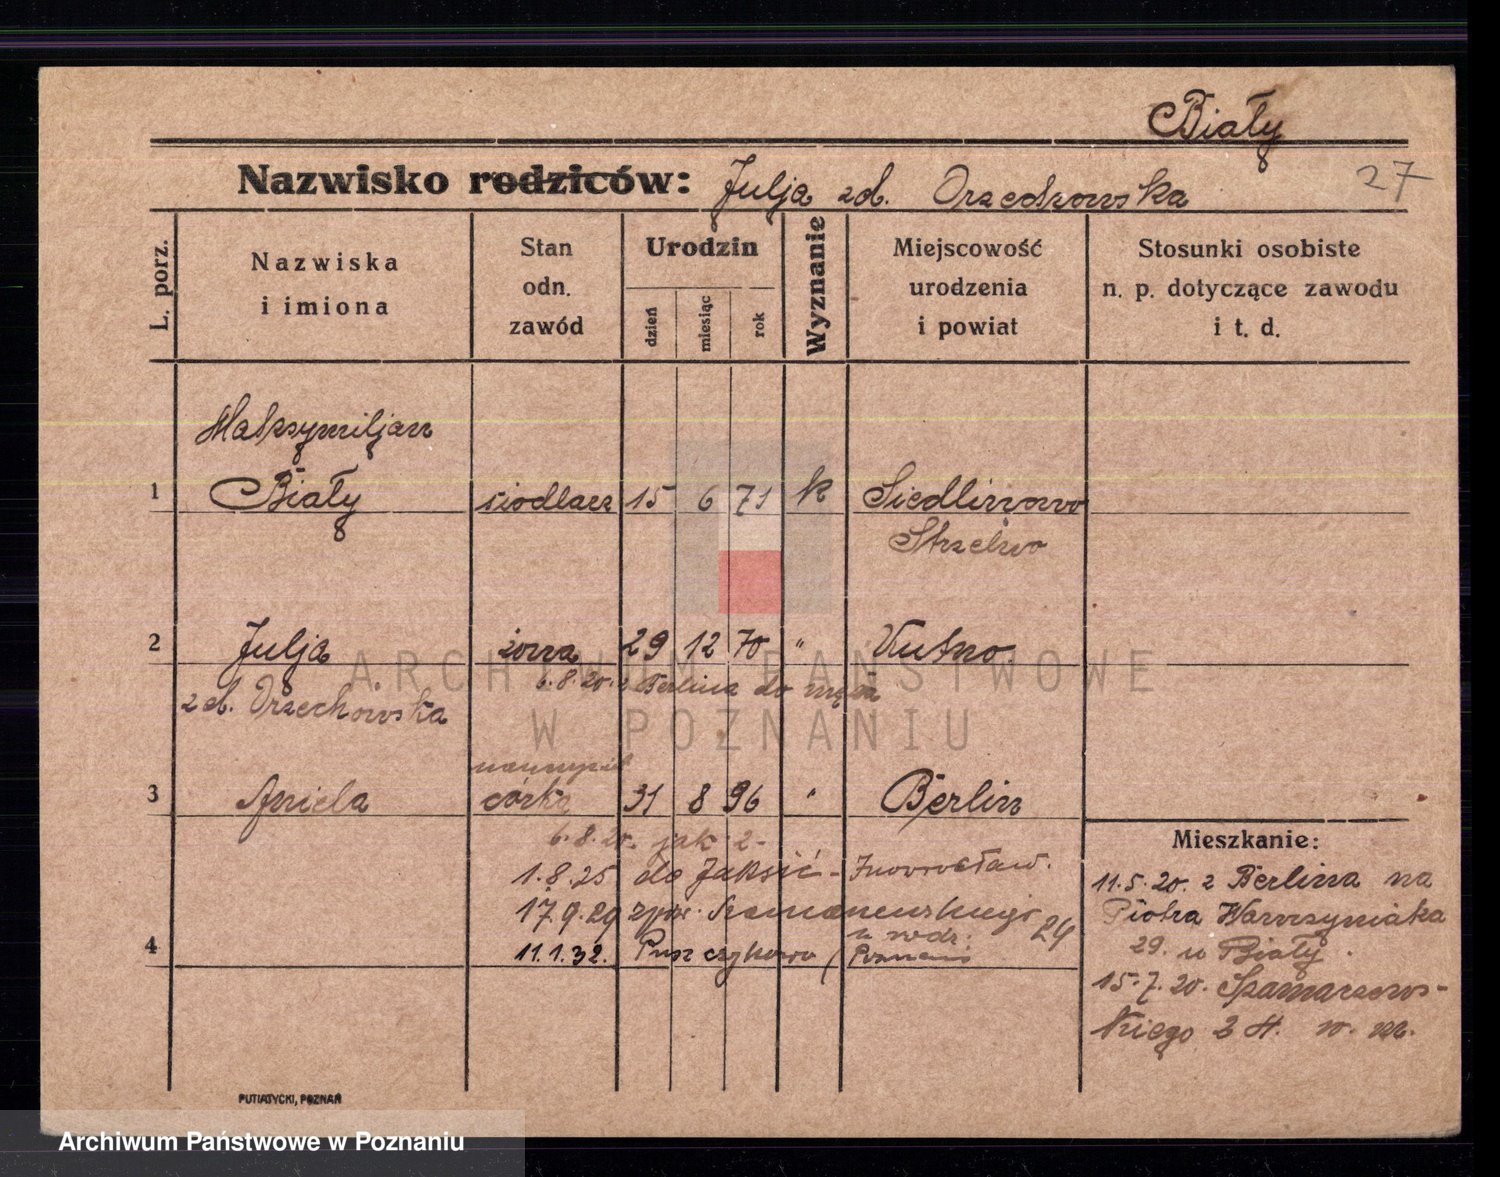 Biały
Nazwisko rodziców: Julja zd. Orzechowska 27
L. porz.
Nazwiska
i imiona
Stan
odn.
zawód
Urodzin
dzień
miesiąc
rok
Wyznanie
Miejscowość
urodzenia
i powiat
Stosunki osobiste
n. p. dotyczące zawodu
i t. d.
Maksymiljan
1 Biały siodlarz 15 6 71 k Siedlimowo
Strzelno
2 Julja żona 29 12 70 " Kutno
6.8.20. z Berlina do męża
zd. Orzechowska
3 Aniela córka 31 8 96 " Berlin
6.8.20. jak 2-
1.8.25 do Jaksic - Inowrocław.
17.9.29 24
4 11.1.32. Puszczykowo
Mieszkanie:
11.5.20. z Berlina na
Piotra Wawrzyniaka
29. u Biały.
15.7.20. Szamarzews-
kiego 3 w. m.
PUTIATYCKI, POZNAŃ
ARCHIWUM PAŃSTWOWE
W POZNANIU
Archiwum Państwowe w Poznaniu